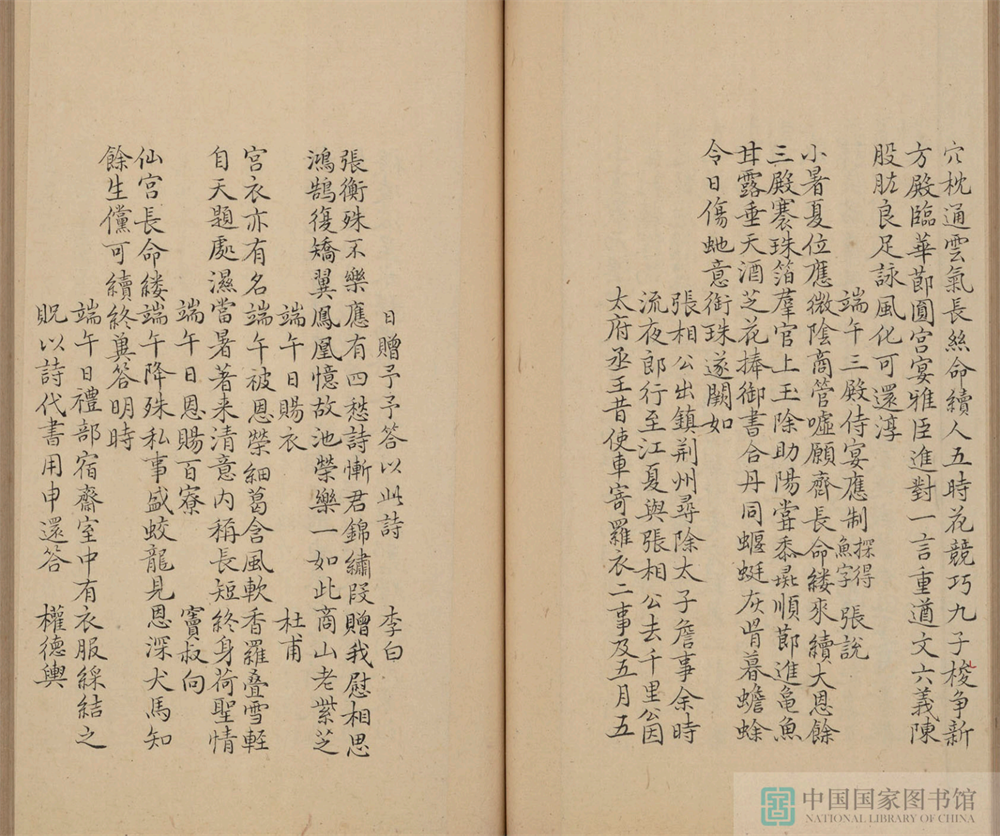 穴枕通雲氣長絲命續人五時花競巧九子梭争新
方殿臨華節圓宮宴雅臣進對一言重遒文六義陳
股肱良足詠風化可還淳
端午三殿侍宴應制探得魚字 張說
小暑夏位應微陰商管噓願齊長命縷來續大恩餘
三殿褰珠箔羣官上玉除助陽嘗黍彘順節進龜魚
甘露垂天酒芝花捧御書合丹同蝘蜓灰骨暮蟾蜍
今日傷虵意銜珠遂闕如
張相公出鎮荆州尋除太子詹事余時
流夜郎行至江夏與張相公去千里公因
太府丞王昔使車寄羅衣二事及五月五
日贈予予答以此詩 李白
張衡殊不樂應有四愁詩慚君錦繡段贈我慰相思
鴻鵠復矯翼鳳凰憶故池榮樂一如此商山老紫芝
端午日賜衣 杜甫
宮衣亦有名端午被恩榮細葛含風軟香羅疊雪輕
自天題處濕當暑著来清意内稱長短終身荷聖情
端午日恩賜百寮 竇叔向
仙宮長命縷端午降殊私事盛蛟龍見恩深犬馬知
餘生儻可續終冀答明時
端午日禮部宿齋室中有衣服綵結之
貺以詩代書用申還答 權德輿
中国国家图书馆
NATIONAL LIBRARY OF CHINA